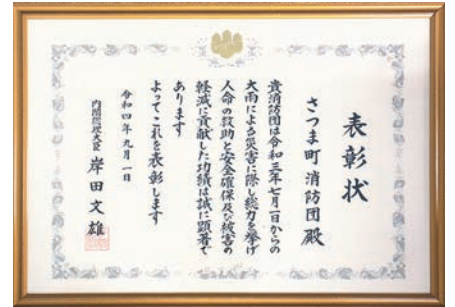 表彰状
さつま町消防団殿
貴消防団は令和三年七月一日からの
大雨による災害に際し総力を挙げ
人命の救助と安全確保及び被害の
軽減に貢献した功績は誠に顕著で
あります
よってこれを表彰します
令和四年九月一日
内閣総理大臣 岸田文雄